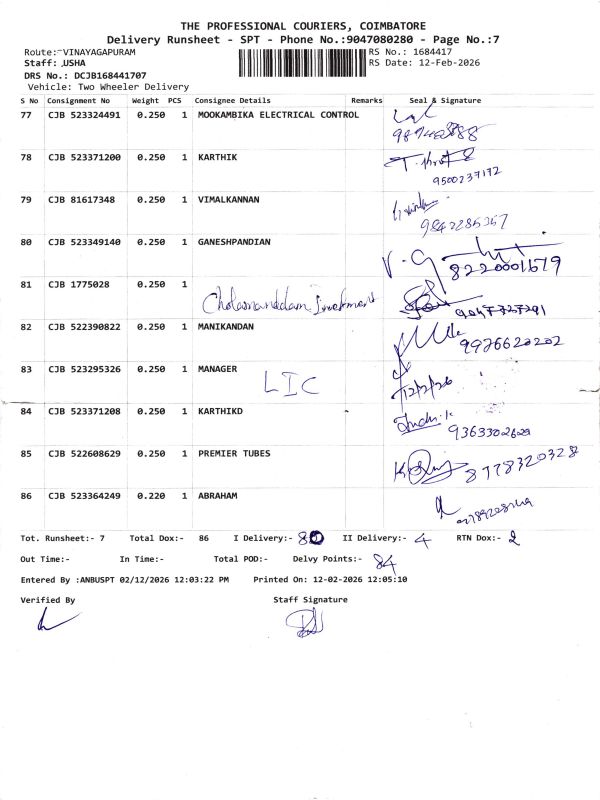 THE PROFESSIONAL COURIERS, COIMBATORE
Delivery Runsheet - SPT - Phone No.:9047080280 - Page No.:7
Route:-VINAYAGAPURAM
RS No.: 1684417
Staff: USHA
RS Date: 12-Feb-2026
DRS No.: DCJB168441707
Vehicle: Two Wheeler Delivery
S No Consignment No Weight PCS Consignee Details Remarks Seal & Signature
77 CJB 523324491 0.250 1 MOOKAMBIKA ELECTRICAL CONTROL
78 CJB 523371200 0.250 1 KARTHIK
9500237172
79 CJB 81617348 0.250 1 VIMALKANNAN
9842285357
80 CJB 523349140 0.250 1 GANESHPANDIAN
8220001579
81 CJB 1775028 0.250 1
Cholamanddam Investment
82 CJB 522390822 0.250 1 MANIKANDAN
9926620202
83 CJB 523295326 0.250 1 MANAGER
LIC
12/2/26
84 CJB 523371208 0.250 1 KARTHIKD
9363302629
85 CJB 522608629 0.250 1 PREMIER TUBES
8778320328
86 CJB 523364249 0.220 1 ABRAHAM
Tot. Runsheet:- 7 Total Dox:- 86 I Delivery:- 80 II Delivery:- 4 RTN Dox:- 2
Out Time:- In Time:- Total POD:- Delvy Points:- 84
Entered By :ANBUSPT 02/12/2026 12:03:22 PM Printed On: 12-02-2026 12:05:10
Verified By Staff Signature